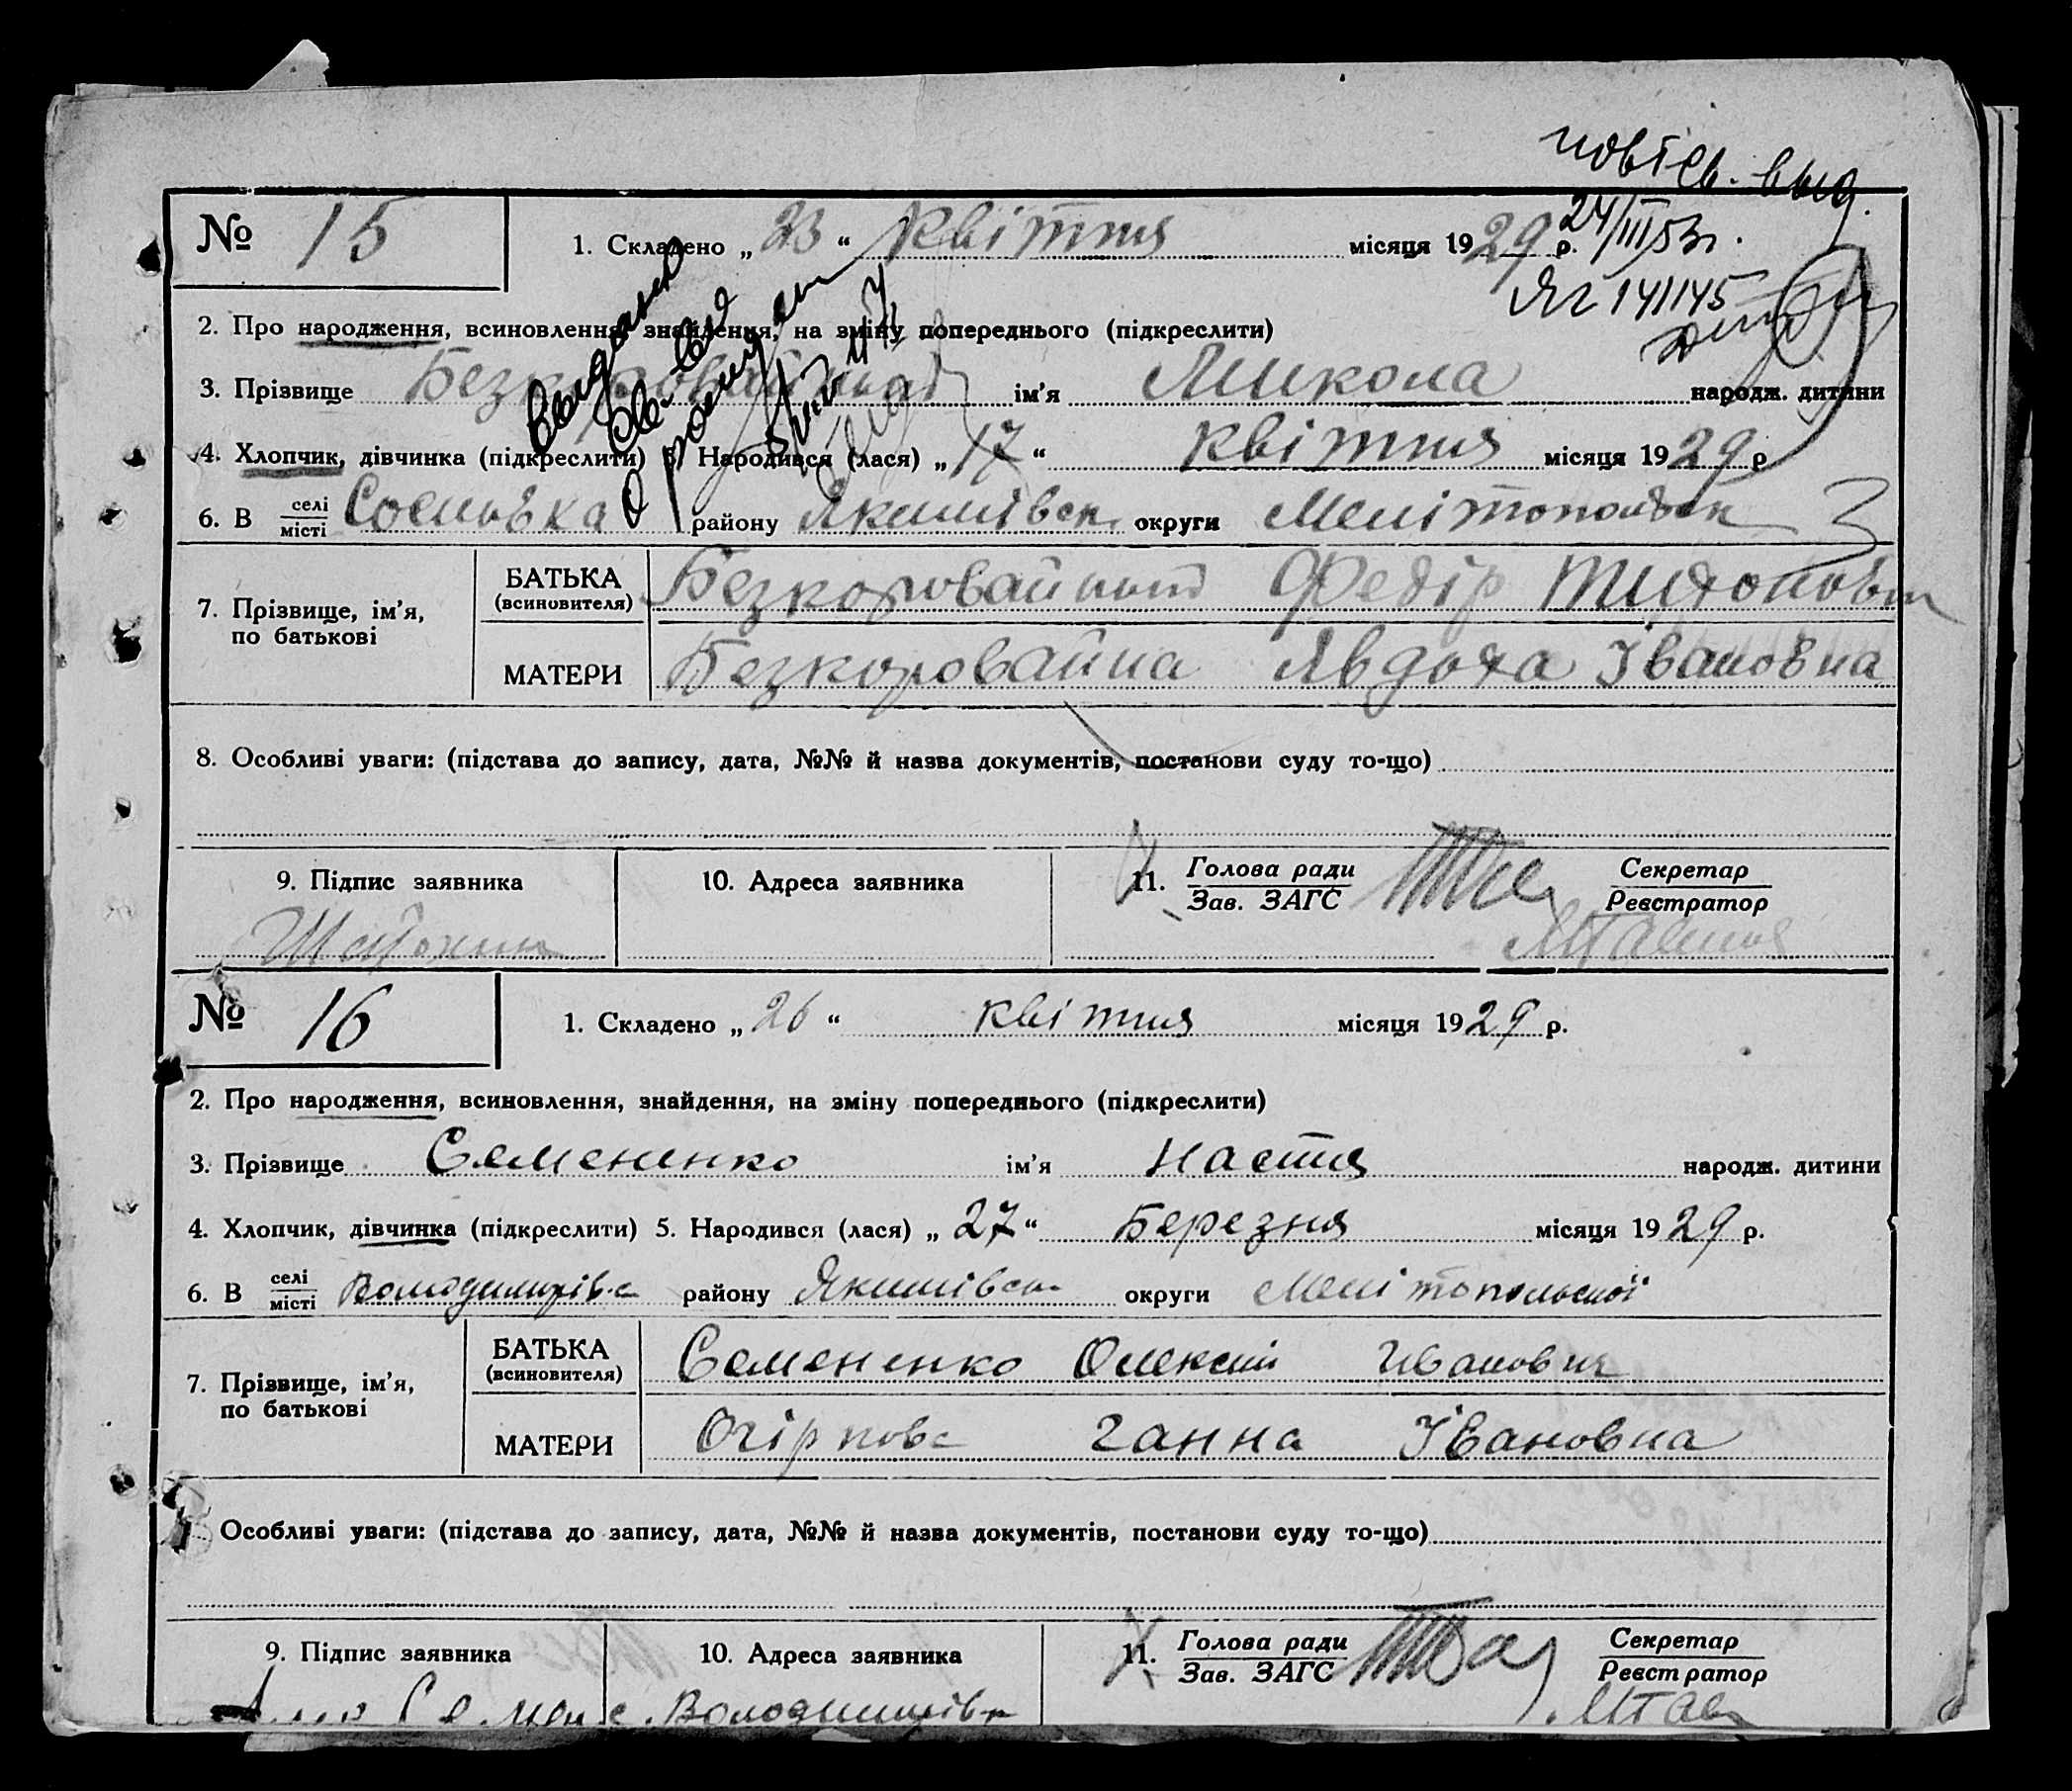 повт св. выд.
24/III 53 г.
ЯГ 141145
№ 15
1. Складено „23“ квітня місяця 1929 р.
Выдано
св-во
о рожд.
2. Про народження, всиновлення, знайдення, на зміну попереднього (підкреслити)
3. Прізвище Безкоровайний ім'я Микола народж. дитини
4. Хлопчик, дівчинка (підкреслити) 5. Народився (лася) „17“ квітня місяця 1929 р
6. В селі/місті Сосновка району Якимівск. округи Мелітопольск
7. Прізвище, ім'я, по батькові
БАТЬКА (всиновителя) Безкоровайний Федір Тихонович
МАТЕРИ Безкоровайна Явдоха Івановна
8. Особливі уваги: (підстава до запису, дата, №№ й назва документів, постанови суду то-що)
9. Підпис заявника
10. Адреса заявника
11. Голова ради/Зав. ЗАГС
Секретар/Реєстратор
№ 16
1. Складено „26“ квітня місяця 1929 р.
2. Про народження, всиновлення, знайдення, на зміну попереднього (підкреслити)
3. Прізвище Семененко ім'я Настя народж. дитини
4. Хлопчик, дівчинка (підкреслити) 5. Народився (лася) „27“ Березня місяця 1929 р.
6. В селі/місті Володимирівс району Якимівск округи Мелітопольскої
7. Прізвище, ім'я, по батькові
БАТЬКА (всиновителя) Семененко Олексій Иванович
МАТЕРИ Ганна Івановна
Особливі уваги: (підстава до запису, дата, №№ й назва документів, постанови суду то-що)
9. Підпис заявника
10. Адреса заявника
11. Голова ради/Зав. ЗАГС
Секретар/Реєстратор
Володимирівк